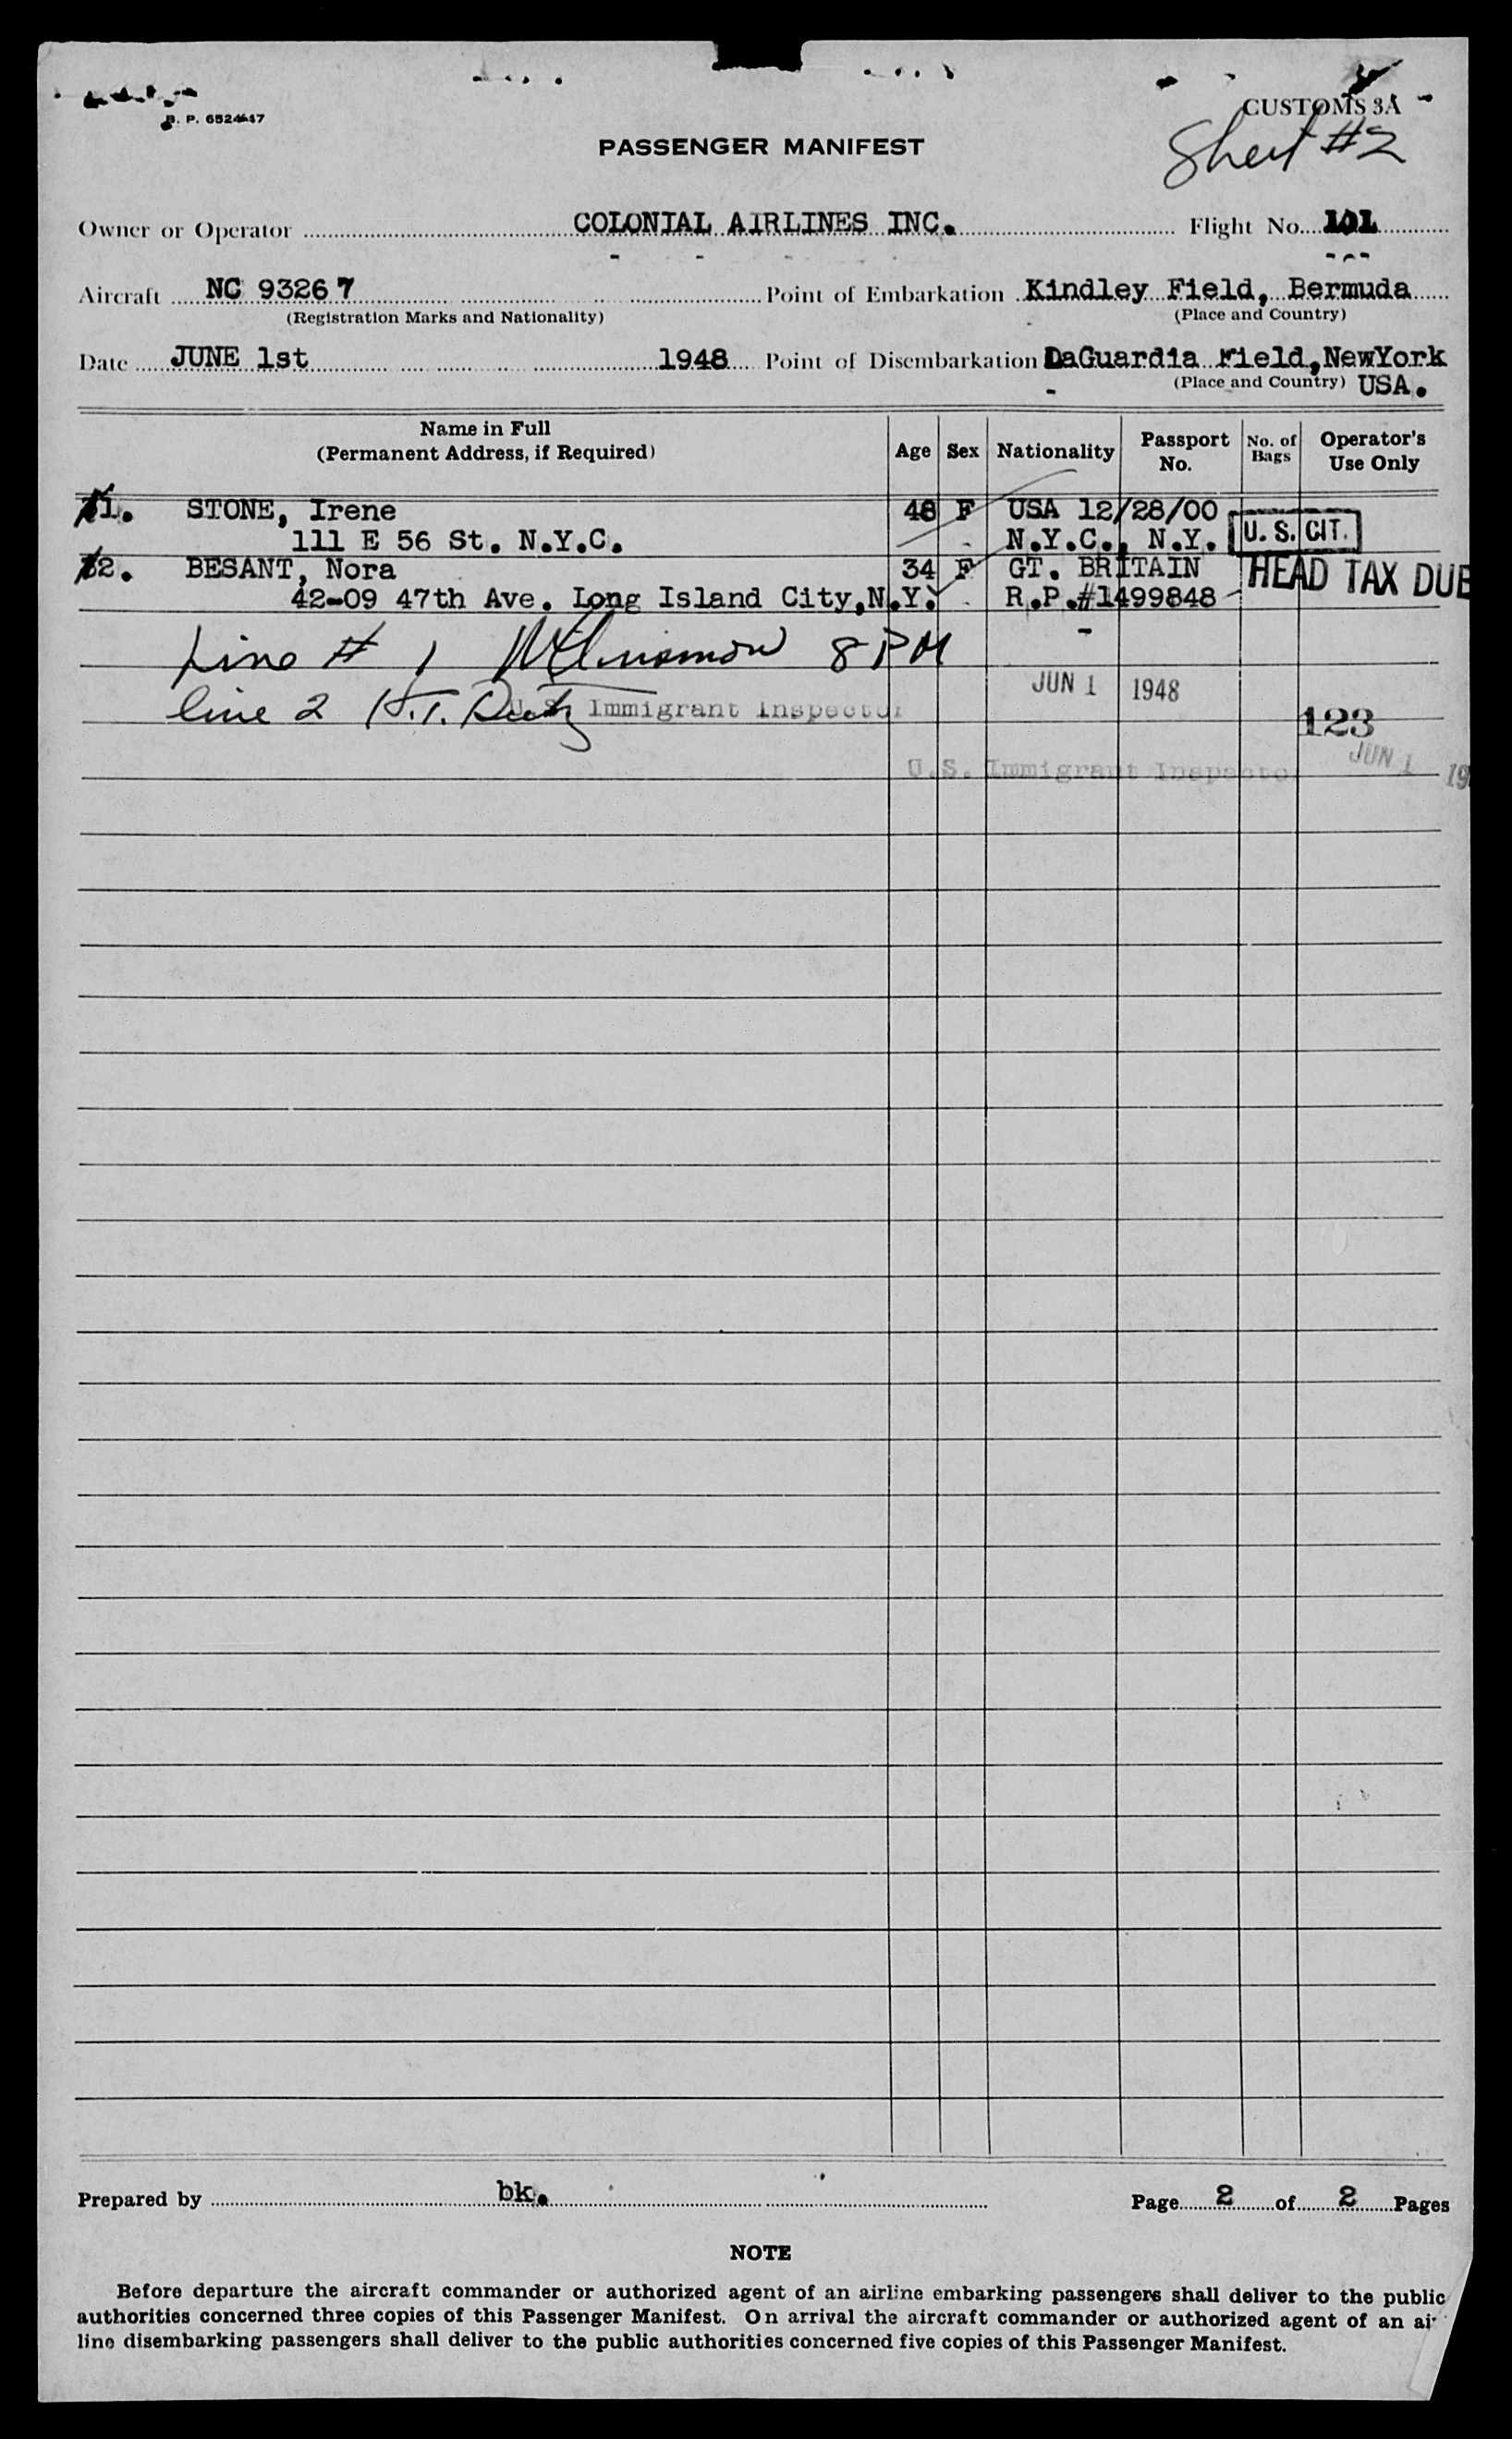 B. P. 6524-47
CUSTOMS 3A
Sheet #2
PASSENGER MANIFEST
Owner or Operator COLONIAL AIRLINES INC. Flight No. 101
Aircraft NC 93267 Point of Embarkation Kindley Field, Bermuda
(Registration Marks and Nationality) (Place and Country)
Date JUNE 1st 1948 Point of Disembarkation LaGuardia Field, NewYork
(Place and Country) USA.
Name in Full
(Permanent Address, if Required) Age Sex Nationality Passport No. No. of Bags Operator's Use Only
1. STONE, Irene 48 F USA 12/28/00
111 E 56 St. N.Y.C. N.Y.C., N.Y. U. S. CIT.
2. BESANT, Nora 34 F GT. BRITAIN HEAD TAX DUE
42-09 47th Ave. Long Island City, N.Y. R.P.#1499848
Line # 1 8 PM
JUN 1 1948
line 2 H.T. U.S. Immigrant Inspector
123
JUN 1 19
U.S. Immigrant Inspector
Prepared by bk. Page 2 of 2 Pages
NOTE
Before departure the aircraft commander or authorized agent of an airline embarking passengers shall deliver to the public
authorities concerned three copies of this Passenger Manifest. On arrival the aircraft commander or authorized agent of an air
line disembarking passengers shall deliver to the public authorities concerned five copies of this Passenger Manifest.